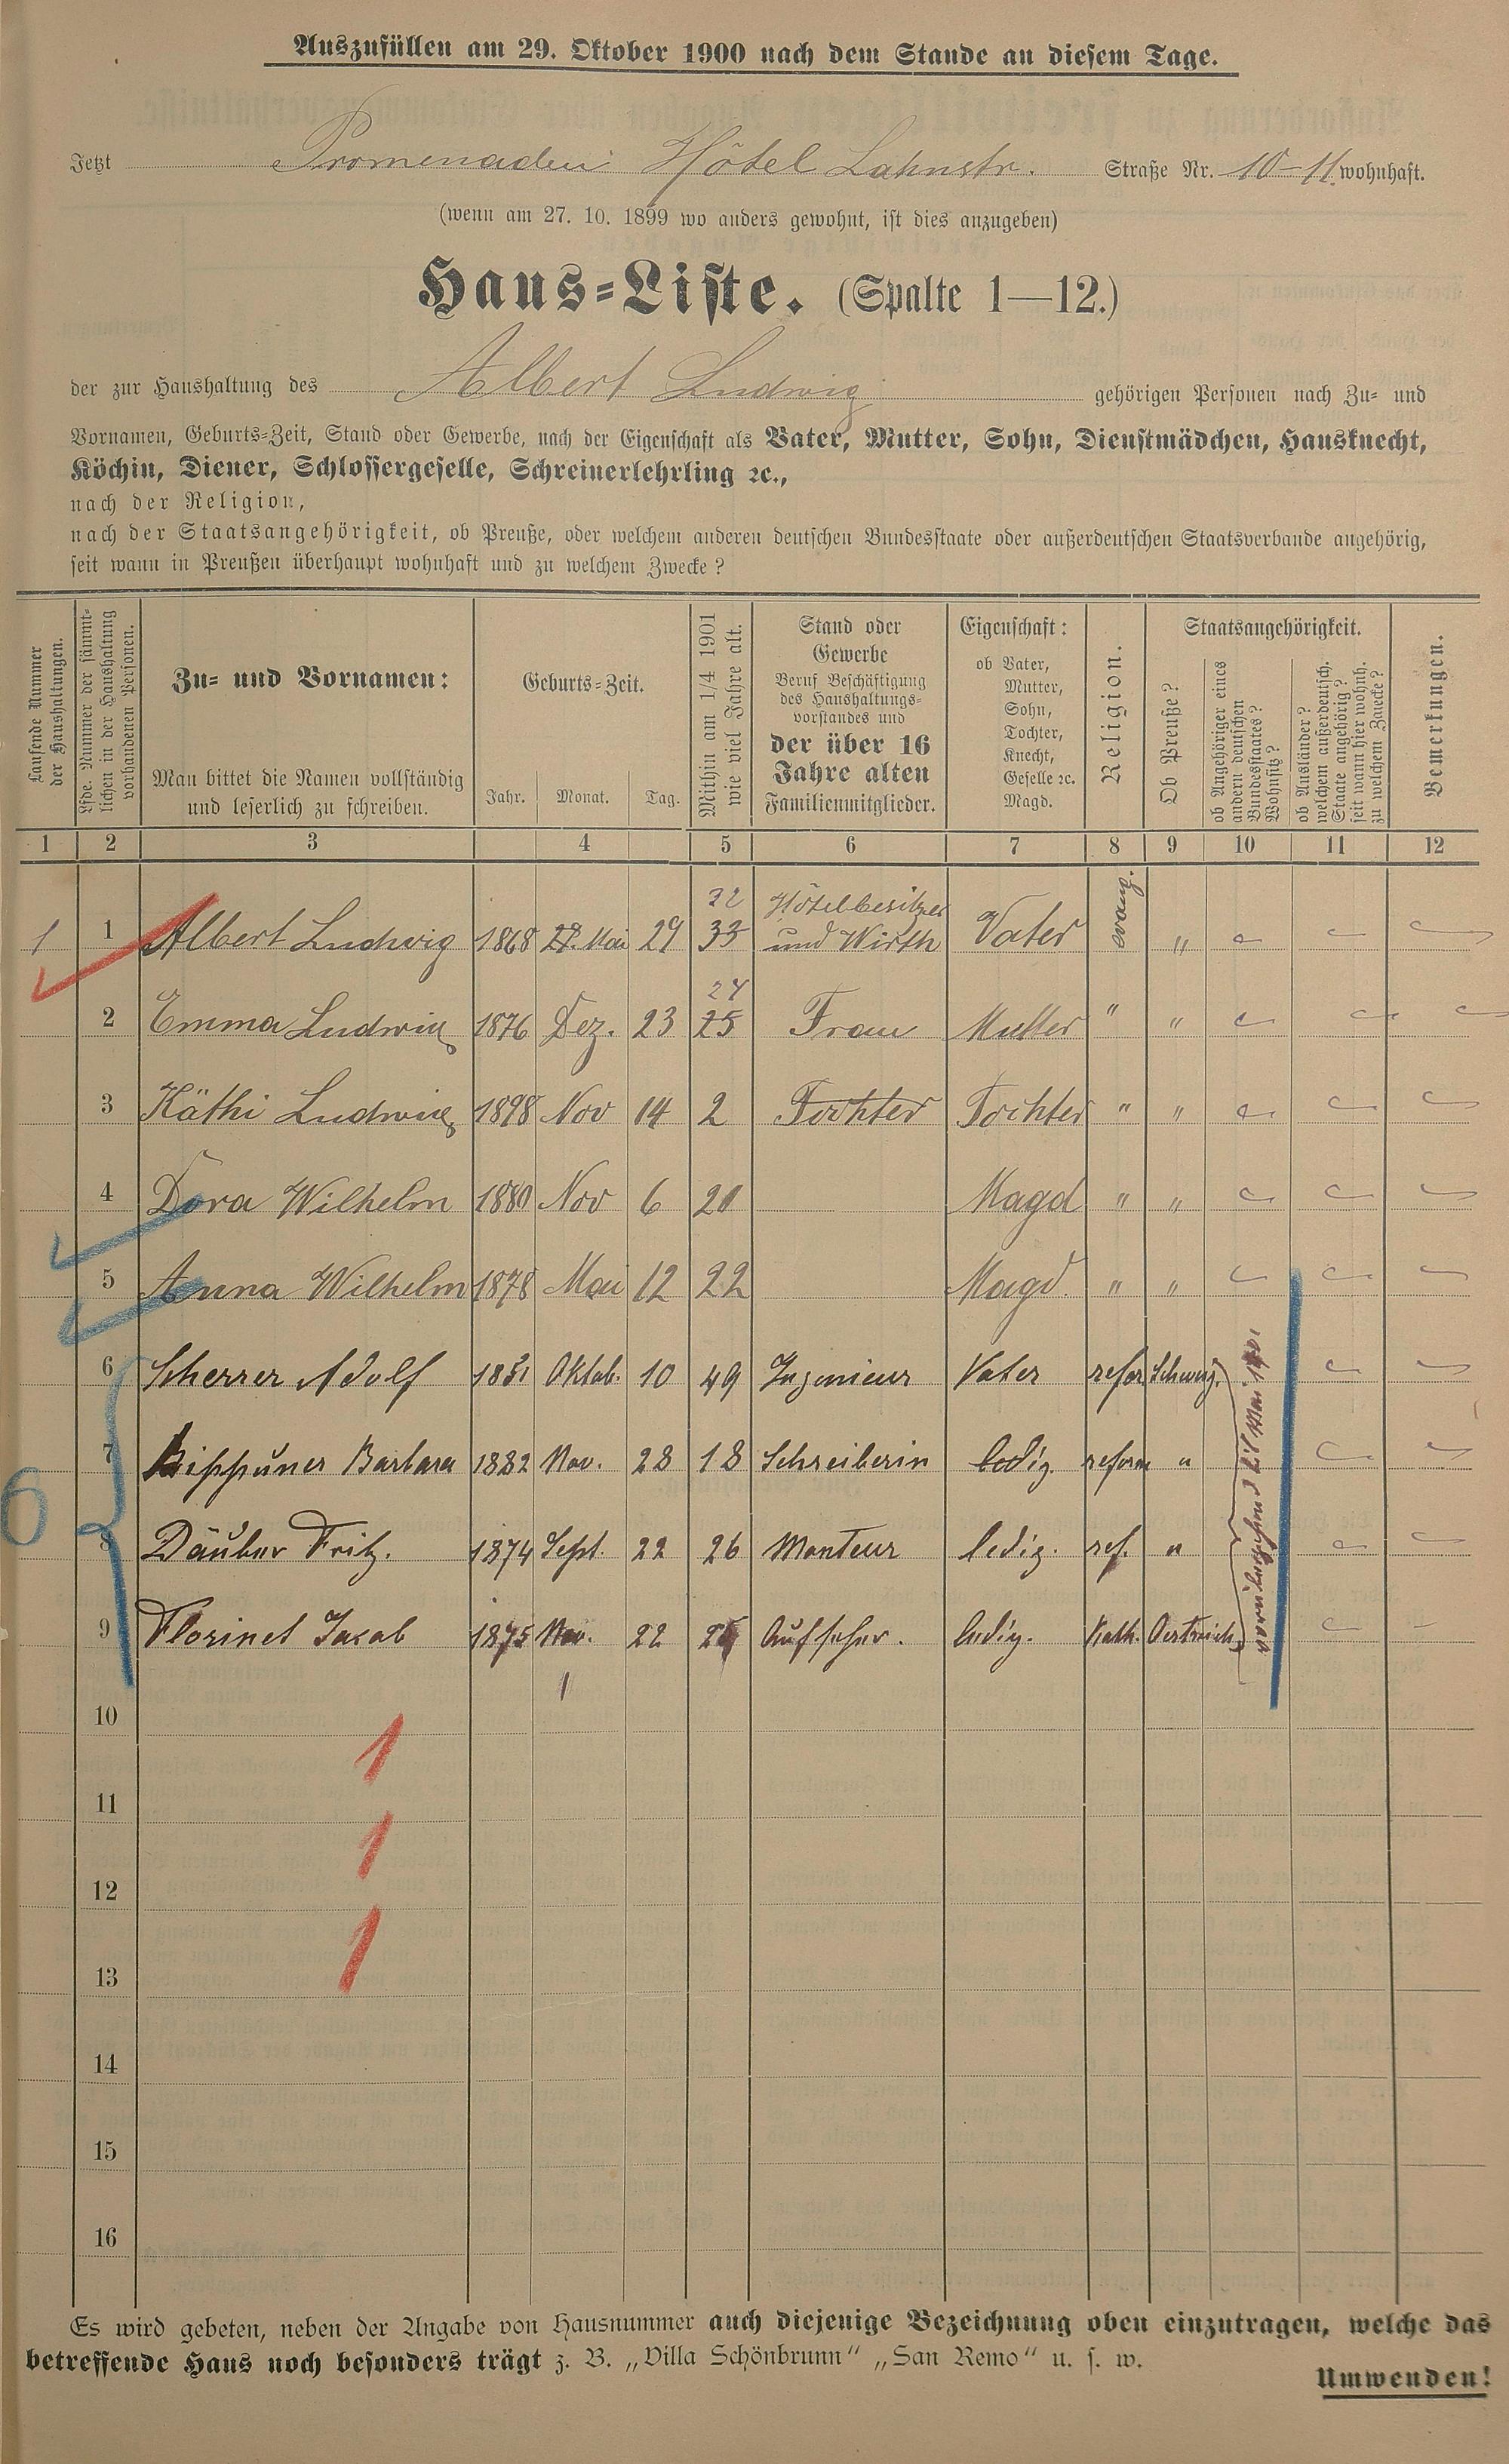 Auszufüllen am 29. Oktober 1900 nach dem Stande an diesem Tage.
Jetzt Promenaden Hôtel Lahnstr. Straße Nr. 10-11 wohnhaft.
(wenn am 27. 10. 1899 wo anders gewohnt, ist dies anzugeben)
Haus-Liste. (Spalte 1—12.)
der zur Haushaltung des Albert Ludwig gehörigen Personen nach Zu- und
Vornamen, Geburts-Zeit, Stand oder Gewerbe, nach der Eigenschaft als Vater, Mutter, Sohn, Dienstmädchen, Hausknecht,
Köchin, Diener, Schlossergeselle, Schreinerlehrling ꝛc.,
nach der Religion,
nach der Staatsangehörigkeit, ob Preuße, oder welchem anderen deutschen Bundesstaate oder außerdeutschen Staatsverbande angehörig,
seit wann in Preußen überhaupt wohnhaft und zu welchem Zwecke?
Laufende Nummer
der Haushaltungen.
Lfde. Nummer der sämmt-
lichen in der Haushaltung
vorhandenen Personen.
Zu- und Vornamen:
Man bittet die Namen vollständig
und leserlich zu schreiben.
Geburts-Zeit.
Jahr. Monat. Tag.
Mithin am 1/4 1901
wie viel Jahre alt.
Stand oder
Gewerbe
Beruf Beschäftigung
des Haushaltungs-
vorstandes und
der über 16
Jahre alten
Familienmitglieder.
Eigenschaft:
ob Vater,
Mutter,
Sohn,
Tochter,
Knecht,
Geselle ꝛc.
Magd.
Religion.
Staatsangehörigkeit.
Ob Preuße?
ob Angehöriger eines
andern deutschen
Bundesstaates?
Wohnsitz?
ob Ausländer?
welchem außerdeutsch.
Staate angehörig?
seit wann hier wohnh.
zu welchem Zwecke?
Bemerkungen.
1 2 3 4 5 6 7 8 9 10 11 12
32 Hôtelbesitzer
1 1 Albert Ludwig 1868 28. Mai 29 33 und Wirth Vater evang. "
24
2 Emma Ludwig 1876 Dez. 23 25 Frau Mutter " "
3 Käthi Ludwig 1898 Nov 14 2 Tochter Tochter " "
4 Dora Wilhelm 1880 Nov 6 20 Magd " "
5 Anna Wilhelm 1878 Mai 12 22 Magd. " "
6 Scherrer Adolf 1851 Oktob. 10 49 Ingenieur Vater refor. Schweiz.
7 Barbara 1882 Nov. 28 18 Schreiberin ledig. reform "
6
8 Däuber Fritz. 1874 Sept. 22 26 Monteur ledig. ref. "
9 Florinet Jacob 1875 Nov. 22 25 Aufseher. ledig. Kath. Oestreich.
vorübergehend bis Mai 1901
1
10
1
11
1
12
1
13
14
15
16
Es wird gebeten, neben der Angabe von Hausnummer auch diejenige Bezeichnung oben einzutragen, welche das
betreffende Haus noch besonders trägt z. B. „Villa Schönbrunn" „San Remo" u. s. w.
Umwenden!